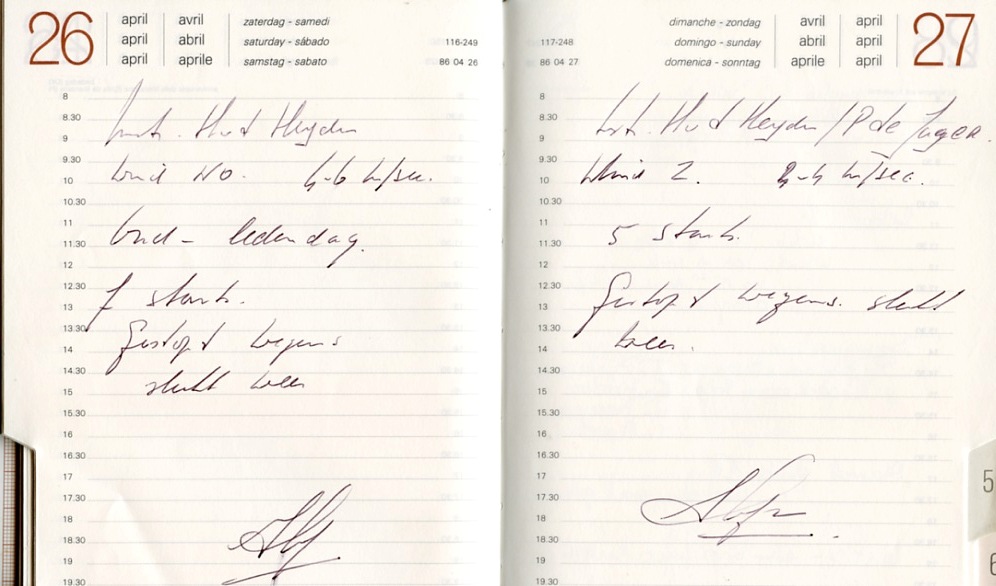 26
april avril zaterdag - samedi
april abril saturday - sábado 116-249
april aprile samstag - sabato 86 04 26
8
8.30
Inst. H v d Heyden
9
9.30
10
Wind NO. 4-6 m/sec.
10.30
11
11.30
Oud - ledendag.
12
12.30
13
7 starts.
13.30
Gestopt wegens
14
14.30
slecht weer
15
15.30
16
16.30
17
17.30
18
18.30
19
19.30
dimanche - zondag avril april 27
117-248 domingo - sunday abril april
86 04 27 domenica - sonntag aprile april
8
8.30
Inst. H v d Heyden / P de Jager.
9
9.30
10
Wind Z. 2-4 m/sec.
10.30
11
11.30
5 starts.
12
12.30
13
Gestopt wegens. slecht
13.30
14
weer.
14.30
15
15.30
16
16.30
17
17.30
18
18.30
19
19.30
5
6